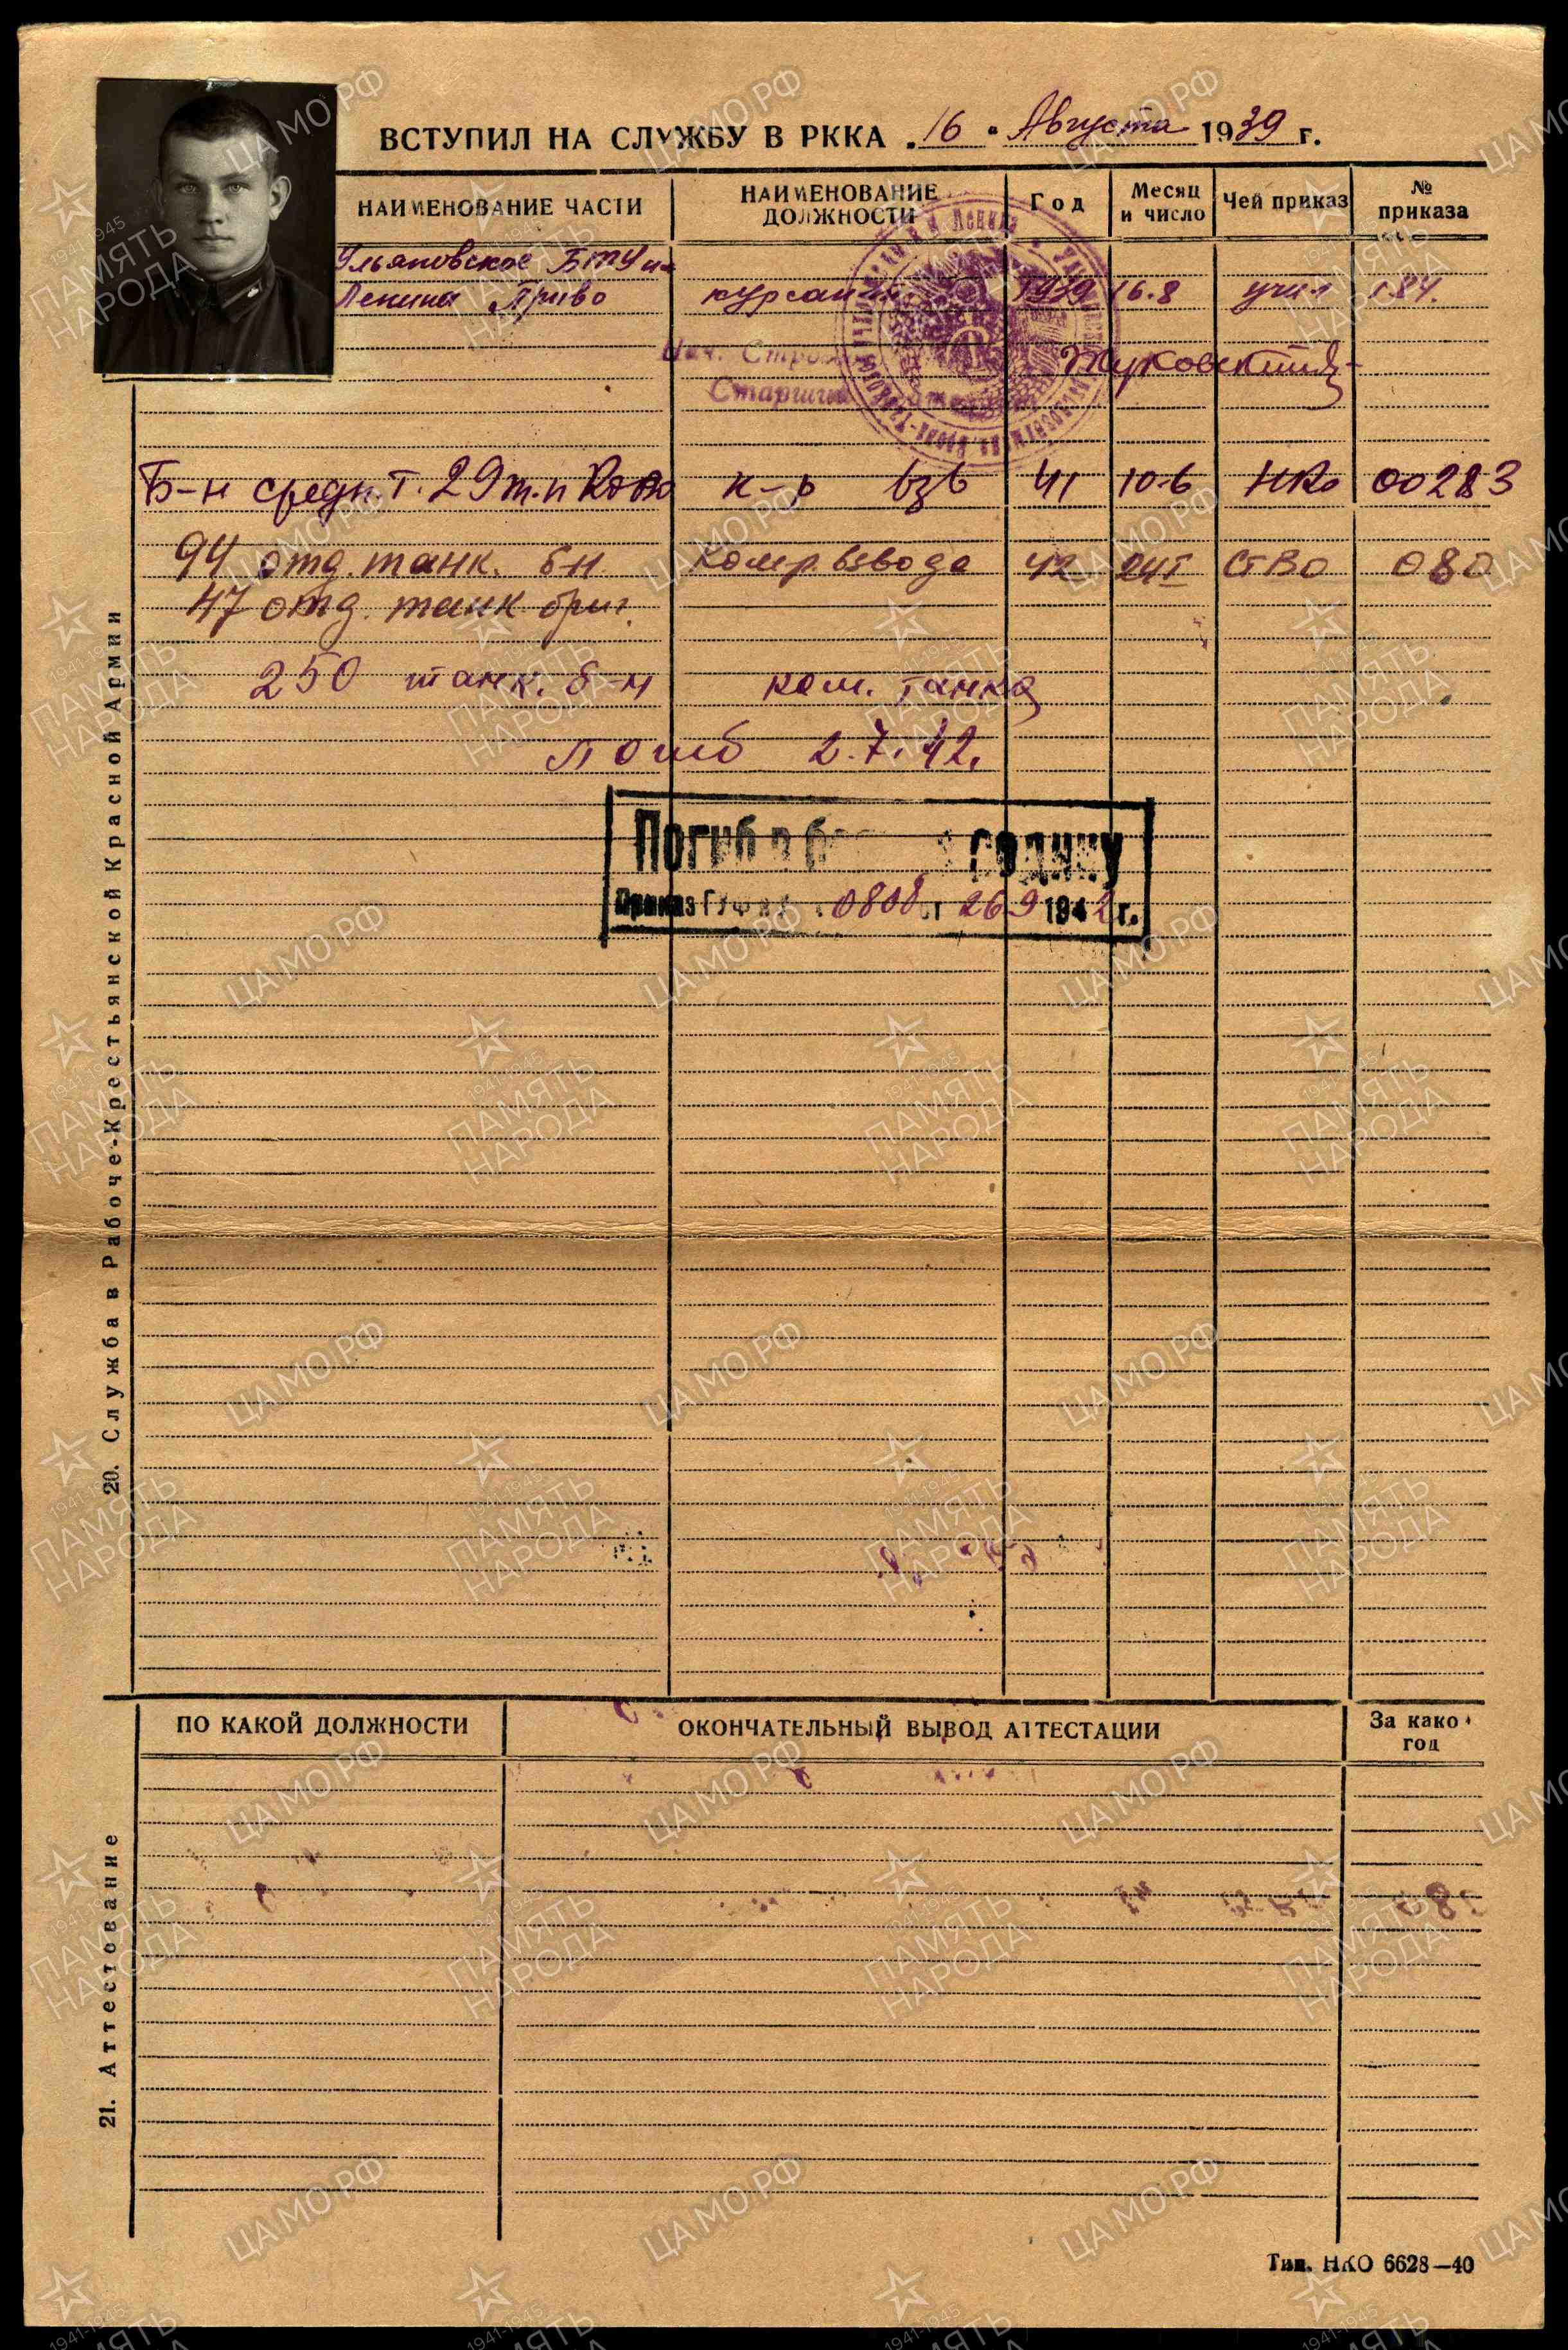 ВСТУПИЛ НА СЛУЖБУ В РККА „16" Августа 1939 г.
НАИМЕНОВАНИЕ ЧАСТИ НАИМЕНОВАНИЕ ДОЛЖНОСТИ Год Месяц и число Чей приказ № приказа
Ульяновское БТУ им
Ленина Приво курсант 1939 16.8 учил 184.
Нач. Строев
Старший
Жуковский
Б-н средн. т. 29 т.п Ково к-р взв 41 10.6 НКо 00283
94 отд. танк. бн. Комр. взвода 42 24I СТВО 080
47 отд. танк бриг.
250 танк. б-н ком. танка
Погиб 2.7.42.
Погиб в родину
Приказ 0808 от 26 9 1942 г.
20. Служба в Рабоче-Крестьянской Красной Армии
ПО КАКОЙ ДОЛЖНОСТИ ОКОНЧАТЕЛЬНЫЙ ВЫВОД АТТЕСТАЦИИ За како год
21. Аттестование
Тип. НКО 6628—40
ЦАМО.РФ
1941-1945
ПАМЯТЬ
НАРОДА